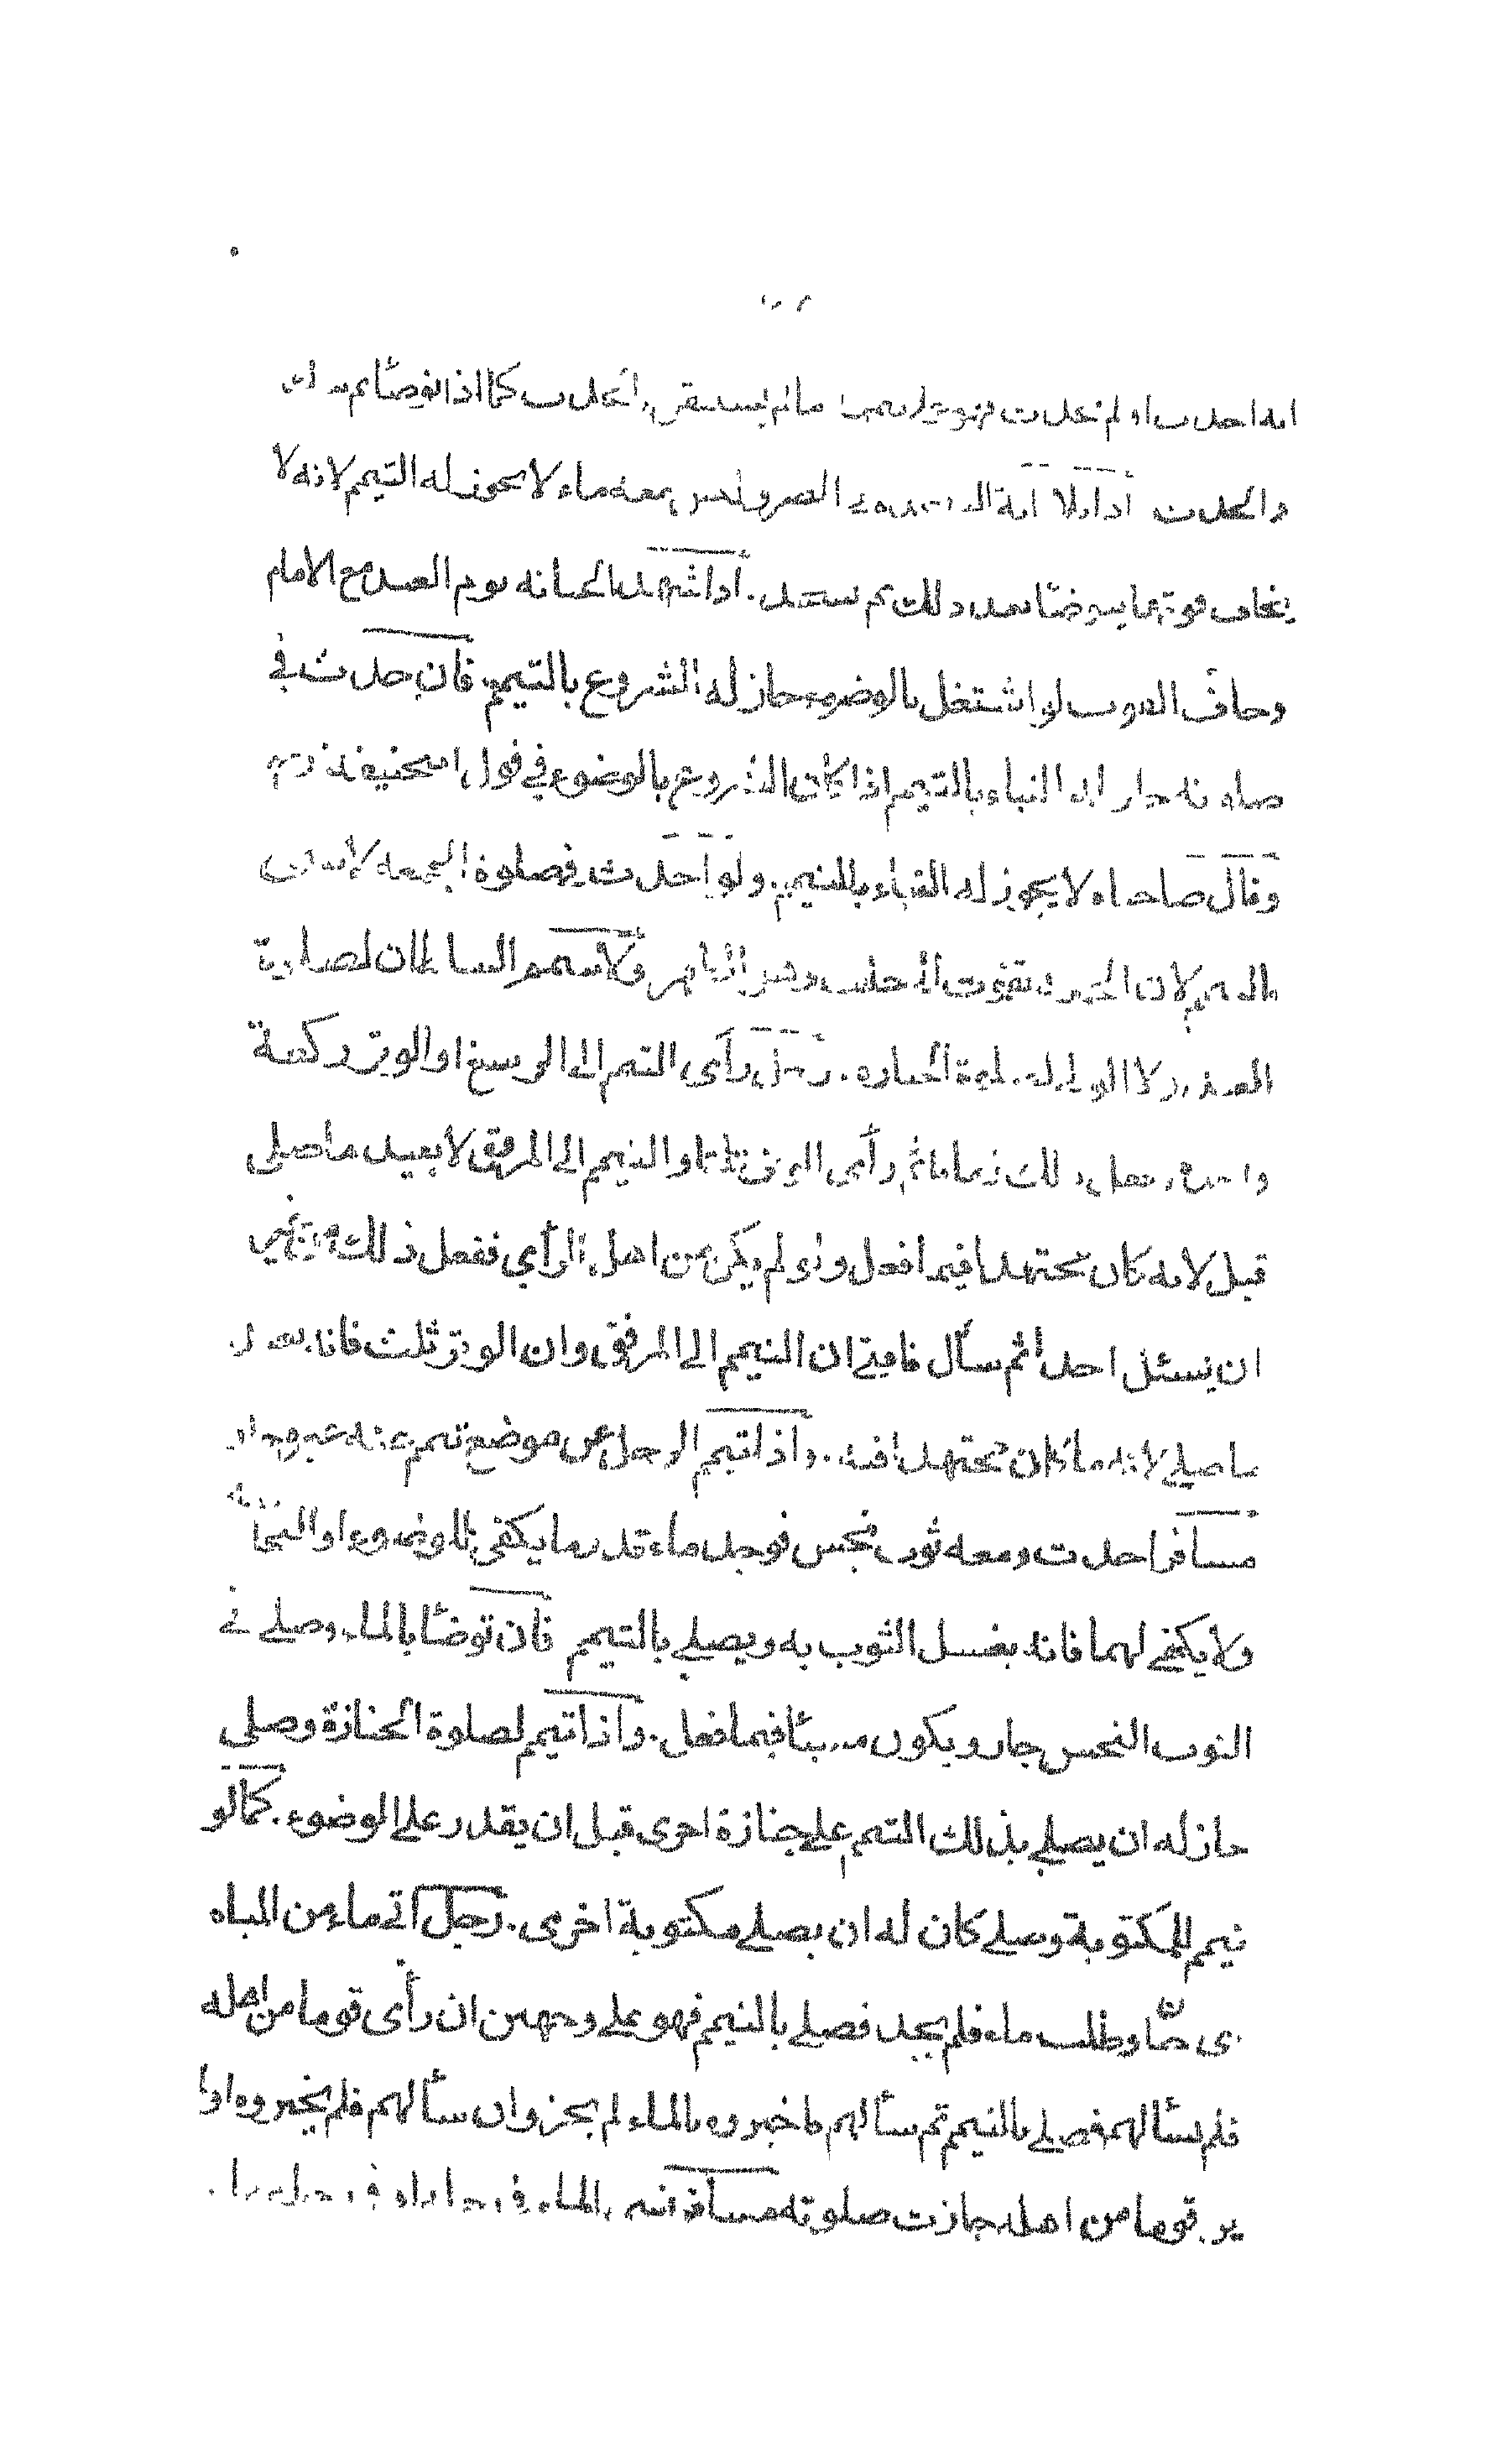 انه احدث او لم يحدث فهو على تيممه ما لم يستيقن بالحدث كما اذا توضأ ثم شك
في الحدث اذا تلا اية السجدة في المصر وليس معه ماء لا يجوز له التيمم لانه لا
يخاف فوتها يتوضأ بعد ذلك ثم يسجد. اذا شهد الجبانه يوم العيد مع الامام
وخاف الفوت لو اشتغل بالوضوء جاز له الشروع بالتيمم. فان احدث في
صلوته جاز له البناء بالتيمم اذا كان الشروع بالوضوء في قول ابي حنيفة
وقال صاحباه لا يجوز له البناء بالتيمم. ولو احدث في صلوة الجمعه لا يبني
بالتيمم لان الجمعة تفوت الى خلف وهو الظهر ولا يتيمم السلطان لصلوة
العيد ولا الولي لصلوة الجنازه. رجل رأى التيمم الى الرسغ او الوتر ركعة
واحدة وفعل ذلك زمانا ثم رأى الوتر ثلاثا والتيمم الى المرفق لا يعيد ما صلى
قبل لانه كان مجتهدا فيما فعل ولو لم يكن من اهل الرأي ففعل ذلك من غير
ان يسئل احدا ثم سأل فافتي ان التيمم الى المرفق وان الوتر ثلث فانه يعيد
ما صلى لانه ما كان مجتهدا فيه. واذا تيمم الرجل عن موضع تيمم عنه غيره جاز
مسافر احدث ومعه ثوب نجس فوجد ماء قدر ما يكفي للوضوء او النجاسة
ولا يكفي لهما فانه يغسل الثوب به ويصلي بالتيمم فان توضأ بالماء وصلى في
الثوب النجس جاز ويكون مسيئا فيما فعل. واذا تيمم لصلوة الجنازة وصلى
جاز له ان يصلي بذلك التيمم على جنازة اخرى قبل ان يقدر على الوضوء. كما لو
تيمم للمكتوبة وصلى كان له ان يصلي مكتوبة اخرى. رجل اتى ماء من المياه
وطلب ماء فلم يجد فصلى بالتيمم فهو على وجهين ان رأى قوما من اهله
فلم يسألهم فصلى بالتيمم ثم سألهم فاخبروه بالماء لم يجز وان سألهم فلم يخبروه او لم
ير قوما من اهله جازت صلوته مسافر نسي الماء في